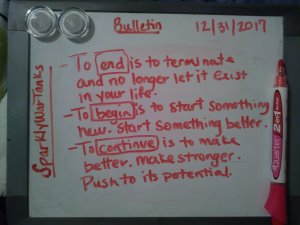 Bulletin 12/31/2017
SparklyWarTanks
- To end is to terminate
and no longer let it Exist
in your life.
- To begin is to start something
new. Start something better.
- To continue is to make
better. Make stronger.
Push to its potential.
Quartet